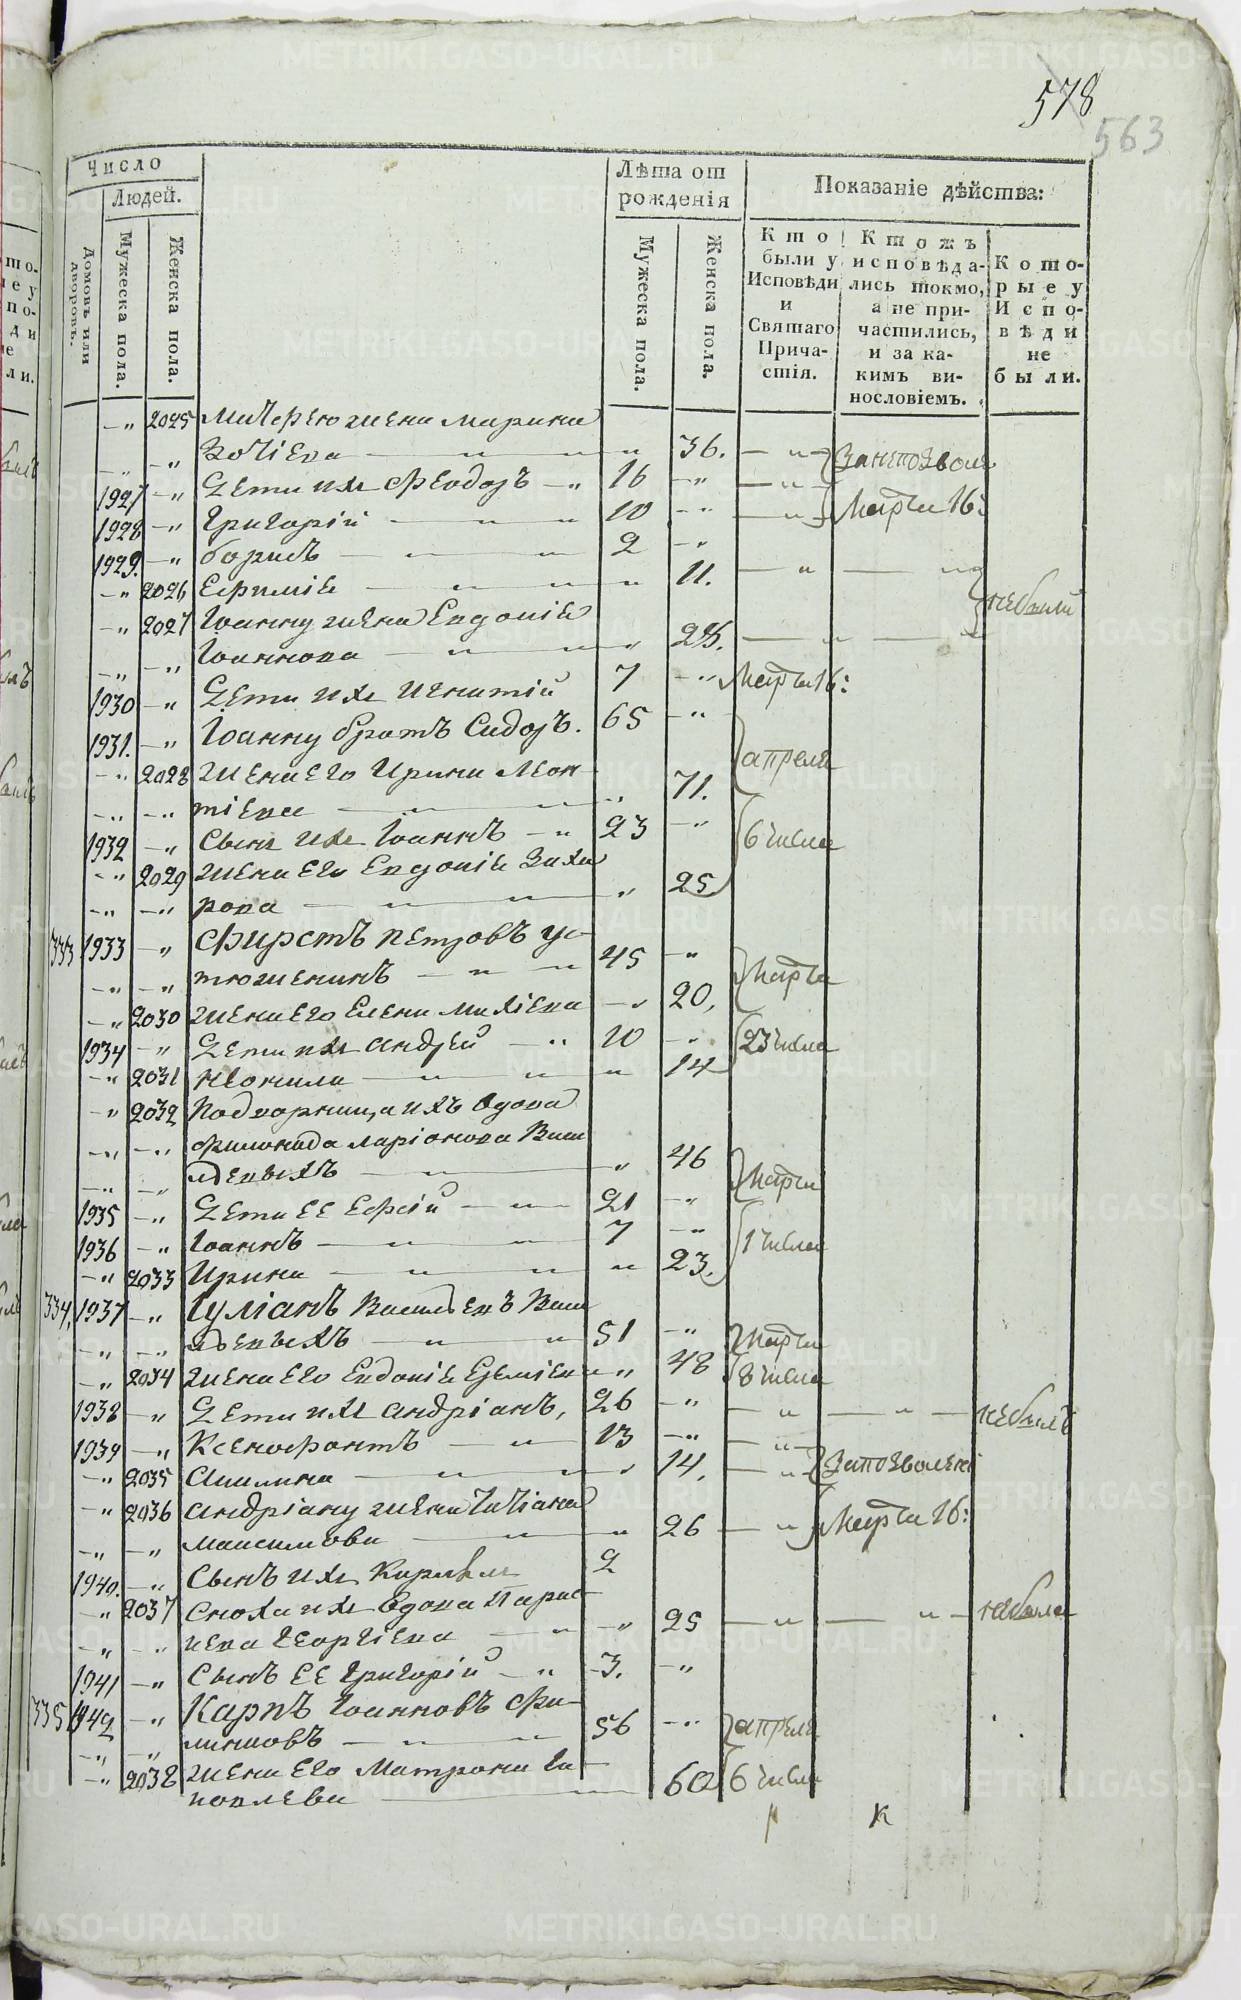 578
563
Число
Людей.
Домовъ или дворовъ.
Мужеска пола.
Женска пола.
Лѣта от рожденія
Мужеска пола.
Женска пола.
Показаніе дѣйства:
Кто были у Исповѣди и Святаго Причастія.
Ктожъ исповѣдались токмо, а не причастились, и за какимъ винословіемъ.
Которые у Исповѣди не были.
—„ 2025 жена Марина
—„ —„ — „ — „ 36. — „
1927 —„ Дети ихъ Феодоръ — „ 16 —„ — „
1928 —„ Григорій — „ — „ 10 —„ — „ Марта 16:
1929. —„ Борисъ — „ — „ 2 —„
—„ 2026 Ефимія — „ — „ 11. — „ — „
не были
—„ 2027 Іоанну жена Евдокія
—„ —„ Іоаннова — „ — „ 28. — „ —
1930 —„ Дети ихъ Игнатій 7 —„ Марта 16:
1931. —„ Іоанну братъ Сидоръ. 65 —„
апреля
—„ 2028 жена его Ирина Леон-
—„ —„ тіева — „ — „ 71.
1932 —„ Сынъ ихъ Іоаннъ — „ 23 —„ 6 числа
—„ 2029 жена его Евдокія Заха
—„ —„ рова — „ — „ 25
333 1933 —„ Фирстъ Петровъ Ус-
—„ —„ тюжекинъ — „ — „ 45 —„ Марта
—„ 2030 жена его Елена — „ 20,
1934 —„ Дети ихъ Андрей — „ 10 —„ 23 числа
—„ 2031 Неонила — „ — „ 14
—„ 2032 Подворница ихъ вдова
—„ —„ Филонида Ларіонова Васи
—„ —„ льевыхъ — „ — „ 46 Марта
1935 —„ Дети ее — „ 21 —„
1936 —„ Іоаннъ — „ — „ 7 —„ 1 числа
—„ 2033 Ирина — „ — „ 23.
334, 1937 —„ Іуліанъ Васильевъ Васи
—„ —„ льевыхъ — „ — „ 51 —„ Марта
—„ 2034 жена его Евдокія — „ 48 8 числа
1938 —„ Дети ихъ Андріанъ, 26 —„ — „ — „ — не былъ
1939 —„ Ксенофонтъ — „ 13 —„ — „
—„ 2035 Акилина — „ — „ 14. — „
—„ 2036 Андріану жена Татіана
—„ —„ Максимова — „ — „ 26 — „ Марта 16:
1940. —„ Сынъ ихъ 2
—„ 2037 Сноха ихъ вдова Парас-
—„ —„ кева Георгіева — „ —„ 25 — „ — „ — не была
1941 —„ Сынъ ее Григорій — „ 3. —„
335 1942 —„ Карпъ Іоанновъ Фи-
—„ —„ — „ — „ 56 —„ апреля
—„ 2038 жена его Матрона Іа-
ковлева — 60 6 числа